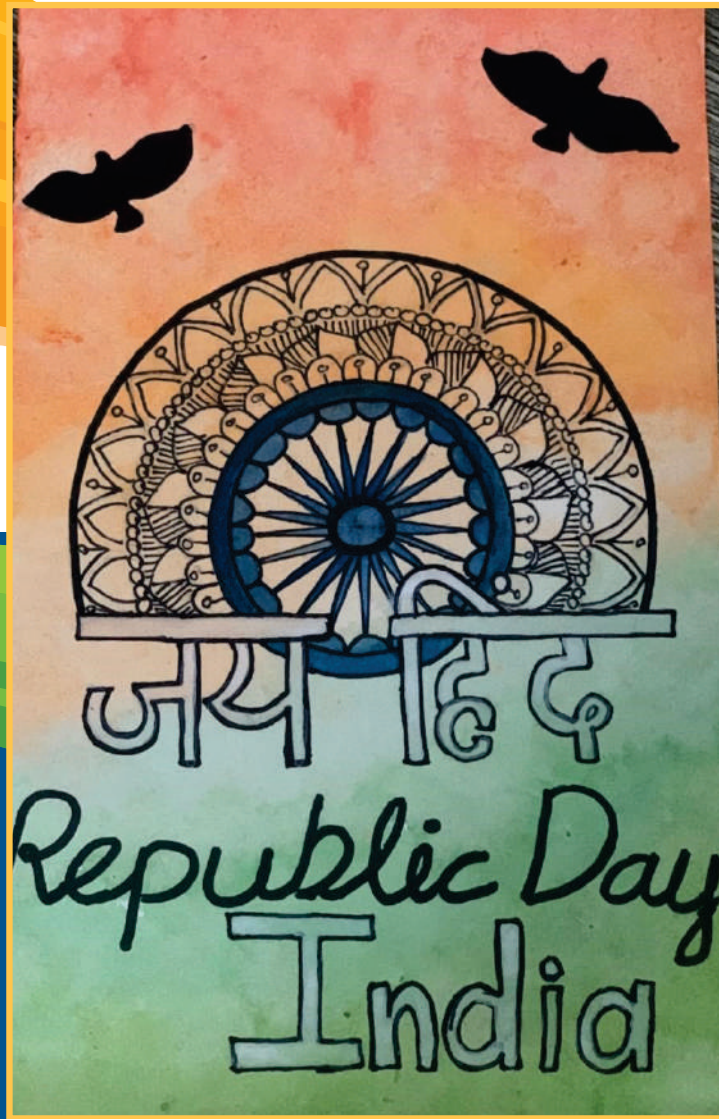 जय हिंद
Republic Day
India